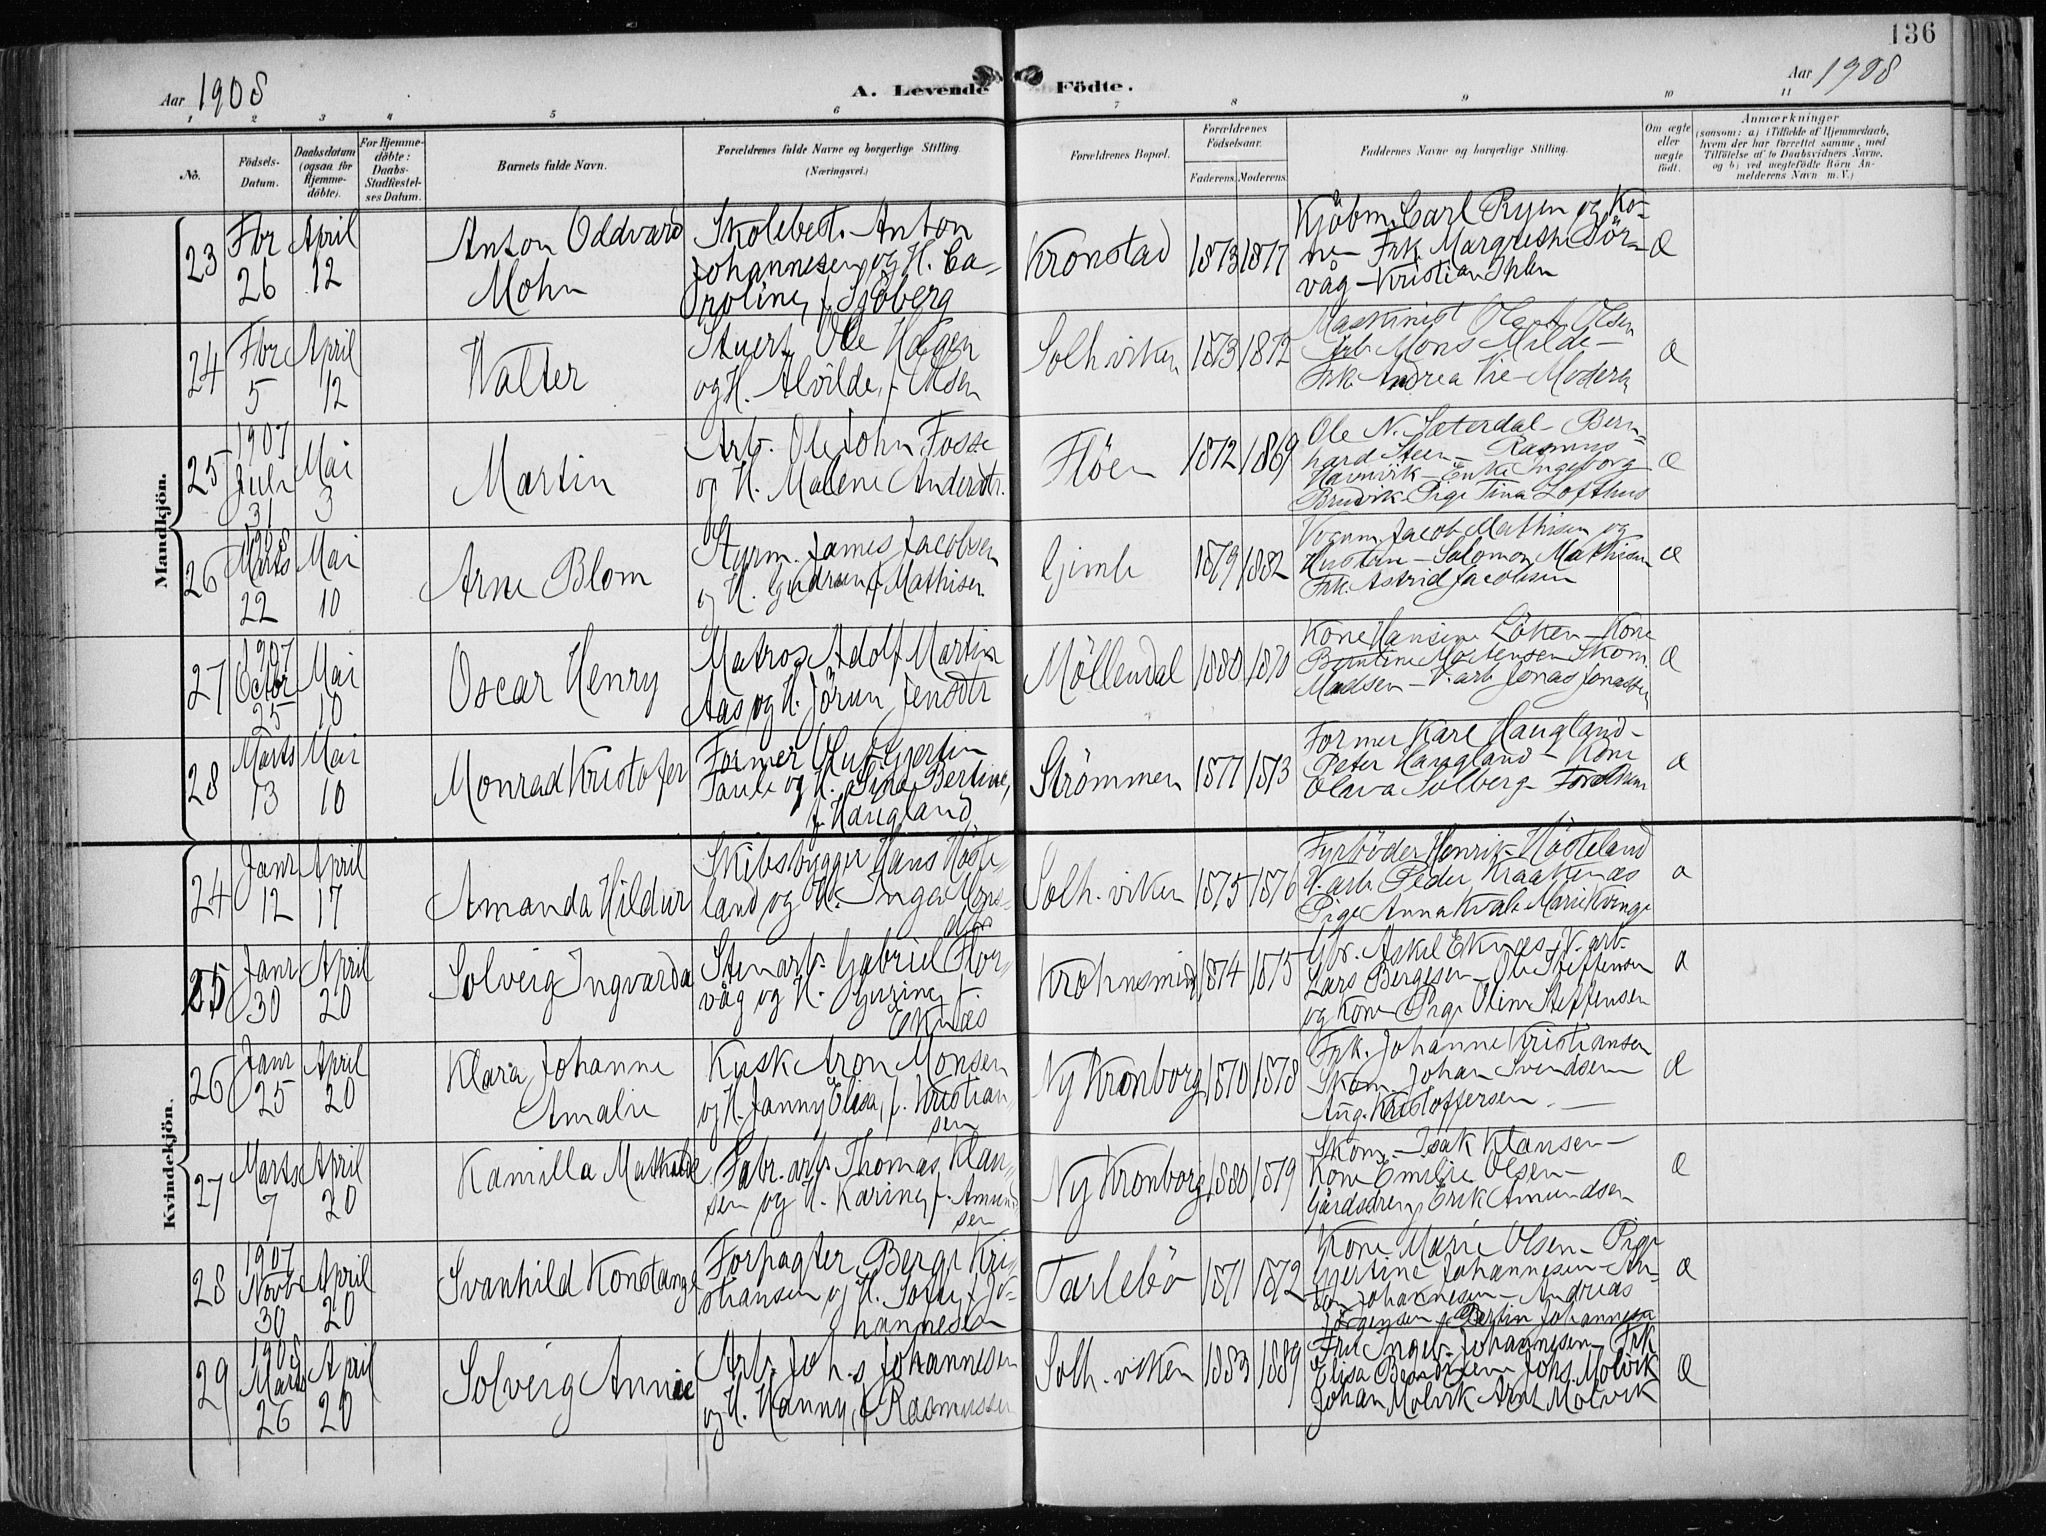 136
Aar 1908
A. Levende Födte.
Aar 1908
1 2 3 4 5 6 7 8 9 10 11
No.
Födsels-Datum.
Daabsdatum (ogsaa for Hjemme-döbte).
For Hjemme-döbte: Daabs-Stadfæstel-ses Datum.
Barnets fulde Navn.
Forældrenes fulde Navne og borgerlige Stilling. (Næringsvei.)
Forældrenes Bopæl.
Forældrenes Födselsaar.
Faderens. Moderens.
Faddernes Navne og borgerlige Stilling.
Om ægte eller uægte födt.
Anmærkninger
(saasom: a) i Tilfælde af Hjemmedaab,
hvem der har forrettet samme, med
Tilföielse af to Daabsvidners Navne,
og b) ved uægtefödte Börn An-
melderens Navn m. V.)
Mandkjön.
23 Fbr 26 April 12
Anton Oddvard
Mohn
Skolebest. Anton
Johannesen og H. Ca-
roline, f. Sjöberg
Kronstad 1873 1877
Kjöbm. Carl Ryen og Ko-
ne - Frk. Margrethe Sör-
våg - Kristian Ihlen
Æ
24 Fbr 5 April 12
Walter
Stuert Ole Hagen
og H. Alvilde, f. Olsen
Solh.viken 1873 1872
Maskinist Ole A. Olsen
Arb. Mons Milde -
Frk. Andrea Vie - Moderen
Æ
25 1907 Juli 31 Mai 3
Martin
Arb. Ole John Fosse
og H. Malene Andersdtr.
Flöen 1872 1869
Ole N. Sæterdal - Bern-
hard Steen - Rasmus
Havnvik - Enke Ingeborg
Brudvik - Pige Tina Lofthus
Æ
26 1908 Marts 22 Mai 10
Arne Blom
Styrm. James Jacobsen
og H. Gudrun f. Mathisen
Gimle 1879 1882
Vognm. Jacob Mathisen og
Hustru - Salomon Mathisen
Frk. Astrid Jacobsen
Æ
27 1907 Octbr 25 Mai 10
Oscar Henry
Matros Adolf Martin
Aas og H. Jörun Jensdtr
Möllendal 1880 1870
Kone Hansine Löken - Kone
Berntine Mortensen Skom.
Madsen - V. arb Jonas Jonassen
Æ
28 Marts 13 Mai 10
Monrad Kristofer
Former Oluf Gjertin
Paule og H. Signe Bertine,
f. Haugland
Strömmen 1877 1873
Former Kare Haugland -
Peter Haugland - Kone
Olava Solberg - Foreldrene
Æ
Kvindekjön.
24 Janr 12 April 17
Amanda Hildur
Skibsbygger Hans Höste-
land og H. Inga Mons-
dtr
Solh.viken 1875 1876
Fyrböder Henrik Hösteland
V. arb. Peder Kraakenæs
Pige Anna Kvale Marie Kvinge
Æ
25 Janr 30 April 20
Solveig Ingvarda
Stenarb. Gabriel Flor-
våg og H. Gurine f.
Eknæs
Krohnsminde 1874 1875
Gbr. Askel Eknæs - V. arb.
Lars Bergesen - Ole Steffensen
og Kone Pige Oline Steffensen
Æ
26 Janr 25 April 20
Klara Johanne
Amalie
Kusk Aron Monsen
og H. Janny Elisa, f. Kristian-
sen
Ny Kronborg 1870 1878
Frk. Johanne Kristiansen
Skom. Johan Svendsen
Aug. Kristoffersen. -
Æ
27 Marts 7 April 20
Kamilla Mathilde
Fabr. arb. Thomas Klau-
sen og H. Karine, f. Amund-
sen
Ny Kronborg 1880 1879
Skom. Isak Klausen -
Kone Emilie Olsen -
Gårdsdreng Erik Amundsen
Æ
28 1907 Novbr 30 April 20
Svanhild Konstanze
Forpagter Berge Kri-
stiansen og H. Sofie, f. Jo-
hannesen
Tarlebö 1871 1872
Kone Marie Olsen - Pige
Gjertine Johannesen - An-
ton Johannesen - Andreas
Jörgensen - Bertin Johannesen
Æ
29 1908 Marts 26 April 20
Solveig Annie
Arb. Joh.s Johannesen
og H. Hanny, f. Rasmussen
Solh.viken 1883 1889
Frk Ingeb. Johannesen - Frk
Elisa Bendixen Johs. Molvik
Johan Molvik Arnt Molvik
Æ